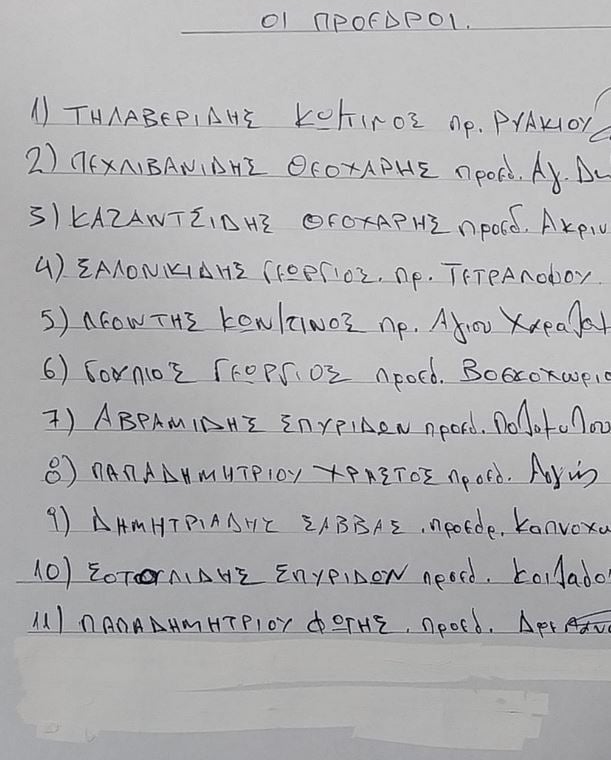 ΟΙ ΠΡΟΕΔΡΟΙ.
1) ΤΗΛΑΒΕΡΙΔΗΣ ΚΩ/ΤΙΝΟΣ πρ. ΡΥΑΚΙΟΥ
2) ΠΕΧΛΙΒΑΝΙΔΗΣ ΘΕΟΧΑΡΗΣ προεδ. Αγ.
3) ΚΑΖΑΝΤΣΙΔΗΣ ΘΕΟΧΑΡΗΣ προεδ. Ακριν
4) ΣΑΛΟΝΙΚΙΔΗΣ ΓΕΩΡΓΙΟΣ. πρ. ΤΕΤΡΑΛΟΦΟΥ.
5) ΛΕΟΝΤΗΣ ΚΩΝ/ΤΙΝΟΣ πρ. Αγίου
6) ΓΟΥΠΙΟΣ ΓΕΩΡΓΙΟΣ προεδ. Βοσκοχωρίο
7) ΑΒΡΑΜΙΔΗΣ ΣΠΥΡΙΔΩΝ προεδ.
8) ΠΑΠΑΔΗΜΗΤΡΙΟΥ ΧΡΗΣΤΟΣ προεδ. Αργίλ
9) ΔΗΜΗΤΡΙΑΔΗΣ ΣΑΒΒΑΣ. προεδρ. Καπνοχω
10) ΣΩΠΥΡΙΔΩΝ προεδ. Κοιλάδο
11) ΠΑΠΑΔΗΜΗΤΡΙΟΥ ΦΩΤΗΣ. προεδ.